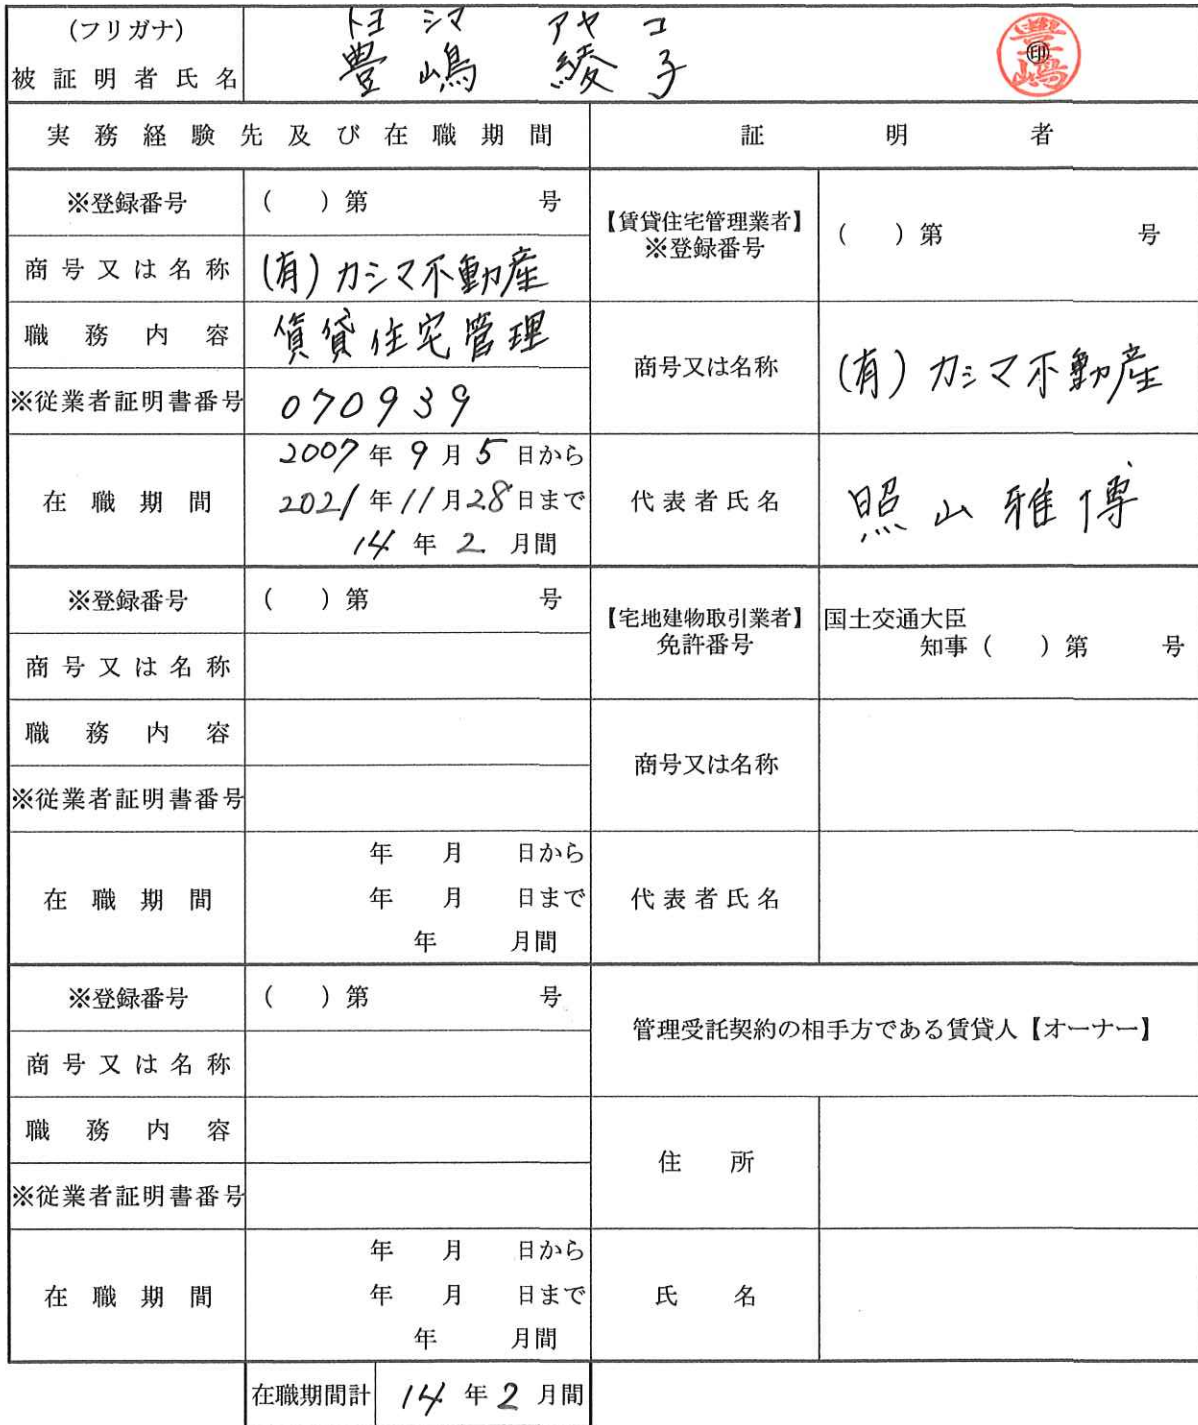 (フリガナ) トヨ シマ アヤ コ
被証明者氏名 豊嶋 綾子 ㊞ 豊嶋
実務経験先及び在職期間 証明者
※登録番号 ( ) 第 号
【賃貸住宅管理業者】
※登録番号 ( ) 第 号
商号又は名称 (有)カシマ不動産
職務内容 賃貸住宅管理
商号又は名称 (有)カシマ不動産
※従業者証明書番号 070939
在職期間
2007年9月5日から
2021年11月28日まで
14年2月間
代表者氏名 照山雅博
※登録番号 ( ) 第 号
【宅地建物取引業者】
免許番号
国土交通大臣
知事 ( ) 第 号
商号又は名称
職務内容
商号又は名称
※従業者証明書番号
在職期間
年 月 日から
年 月 日まで
年 月間
代表者氏名
※登録番号 ( ) 第 号
管理受託契約の相手方である賃貸人【オーナー】
商号又は名称
職務内容
住所
※従業者証明書番号
在職期間
年 月 日から
年 月 日まで
年 月間
氏名
在職期間計 14年2月間